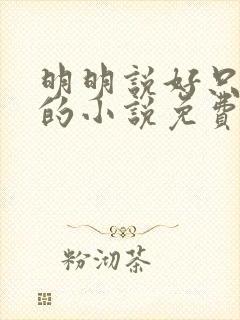 明明說好只
的小說免費
粉沏茶